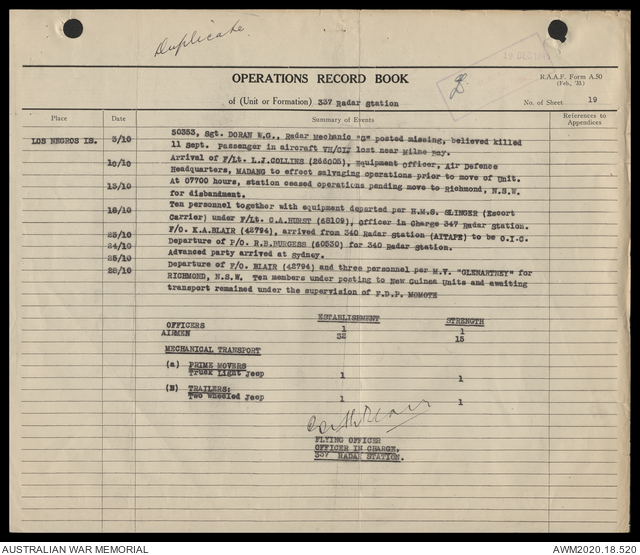 Duplicate
19 DEC 194
OPERATIONS RECORD BOOK
R.A.A.F. Form A.50
(Feb., '35.)
of (Unit or Formation) 337 Radar Station
No. of Sheet 19
Place Date Summary of Events References to Appendices
LOS NEGROS IS. 3/10 50353, Sgt. DORAN W.G., Radar Mechanic "G" posted missing, believed killed
11 Sept. Passenger in aircraft lost near Milne Bay.
10/10 Arrival of F/Lt. L.J.COLLINS (266005), Equipment Officer, Air Defence
Headquarters, MADANG to effect salvaging operations prior to move of Unit.
13/10 At 07700 hours, station ceased operations pending move to Richmond, N.S.W.
for disbandment.
18/10 Ten personnel together with equipment departed per H.M.S. SLINGER (Escort
Carrier) under F/Lt. C.A.HURST (68109), officer in Charge 347 Radar Station.
23/10 F/O. K.A.BLAIR (42794), arrived from 340 Radar Station (AITAPE) to be O.I.C.
24/10 Departure of P/O. R.B.BURGESS (60530) for 340 Radar Station.
25/10 Advanced party arrived at Sydney.
28/10 Departure of F/O. BLAIR (42794) and three personnel per M.V. "GLENARTNEY" for
RICHMOND, N.S.W. Ten members under posting to New Guinea Units and awaiting
transport remained under the supervision of F.D.P. MOMOTE
ESTABLISHMENT STRENGTH
OFFICERS 1 1
AIRMEN 32 15
MECHANICAL TRANSPORT
(a) PRIME MOVERS
Truck Light Jeep 1 1
(B) TRAILERS:
Two Wheeled Jeep 1 1
FLYING OFFICER
OFFICER IN CHARGE,
337 RADAR STATION.
AUSTRALIAN WAR MEMORIAL
AWM2020.18.520